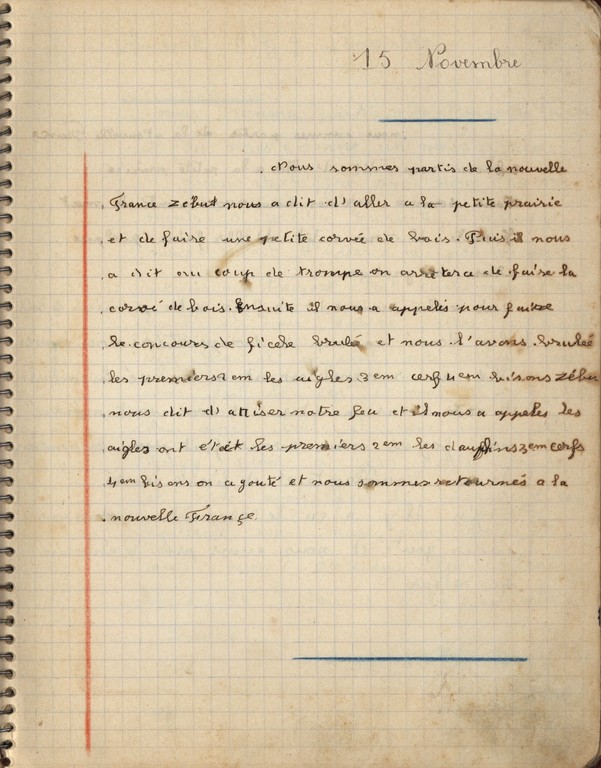 15 Novembre
Nous sommes partis de la nouvelle
France zébu nous a dit d'aller a la petite prairie
et de faire une petite corvée de bois. Puis il nous
a dit au coup de trompe on arretera de faire la
corvé de bois. Ensuite il nous a appelés pour faire
le concours de ficele brulé et nous l'avons brulée
les premiers 2em les aigles 3em cerf 4em bisons zébu
nous dit d'attiser notre feu et il nous a appelés les
aigles ont était les premiers 2em les dauffins 3em cerfs
4em bisons on a gouté et nous sommes retournés a la
nouvelle France.